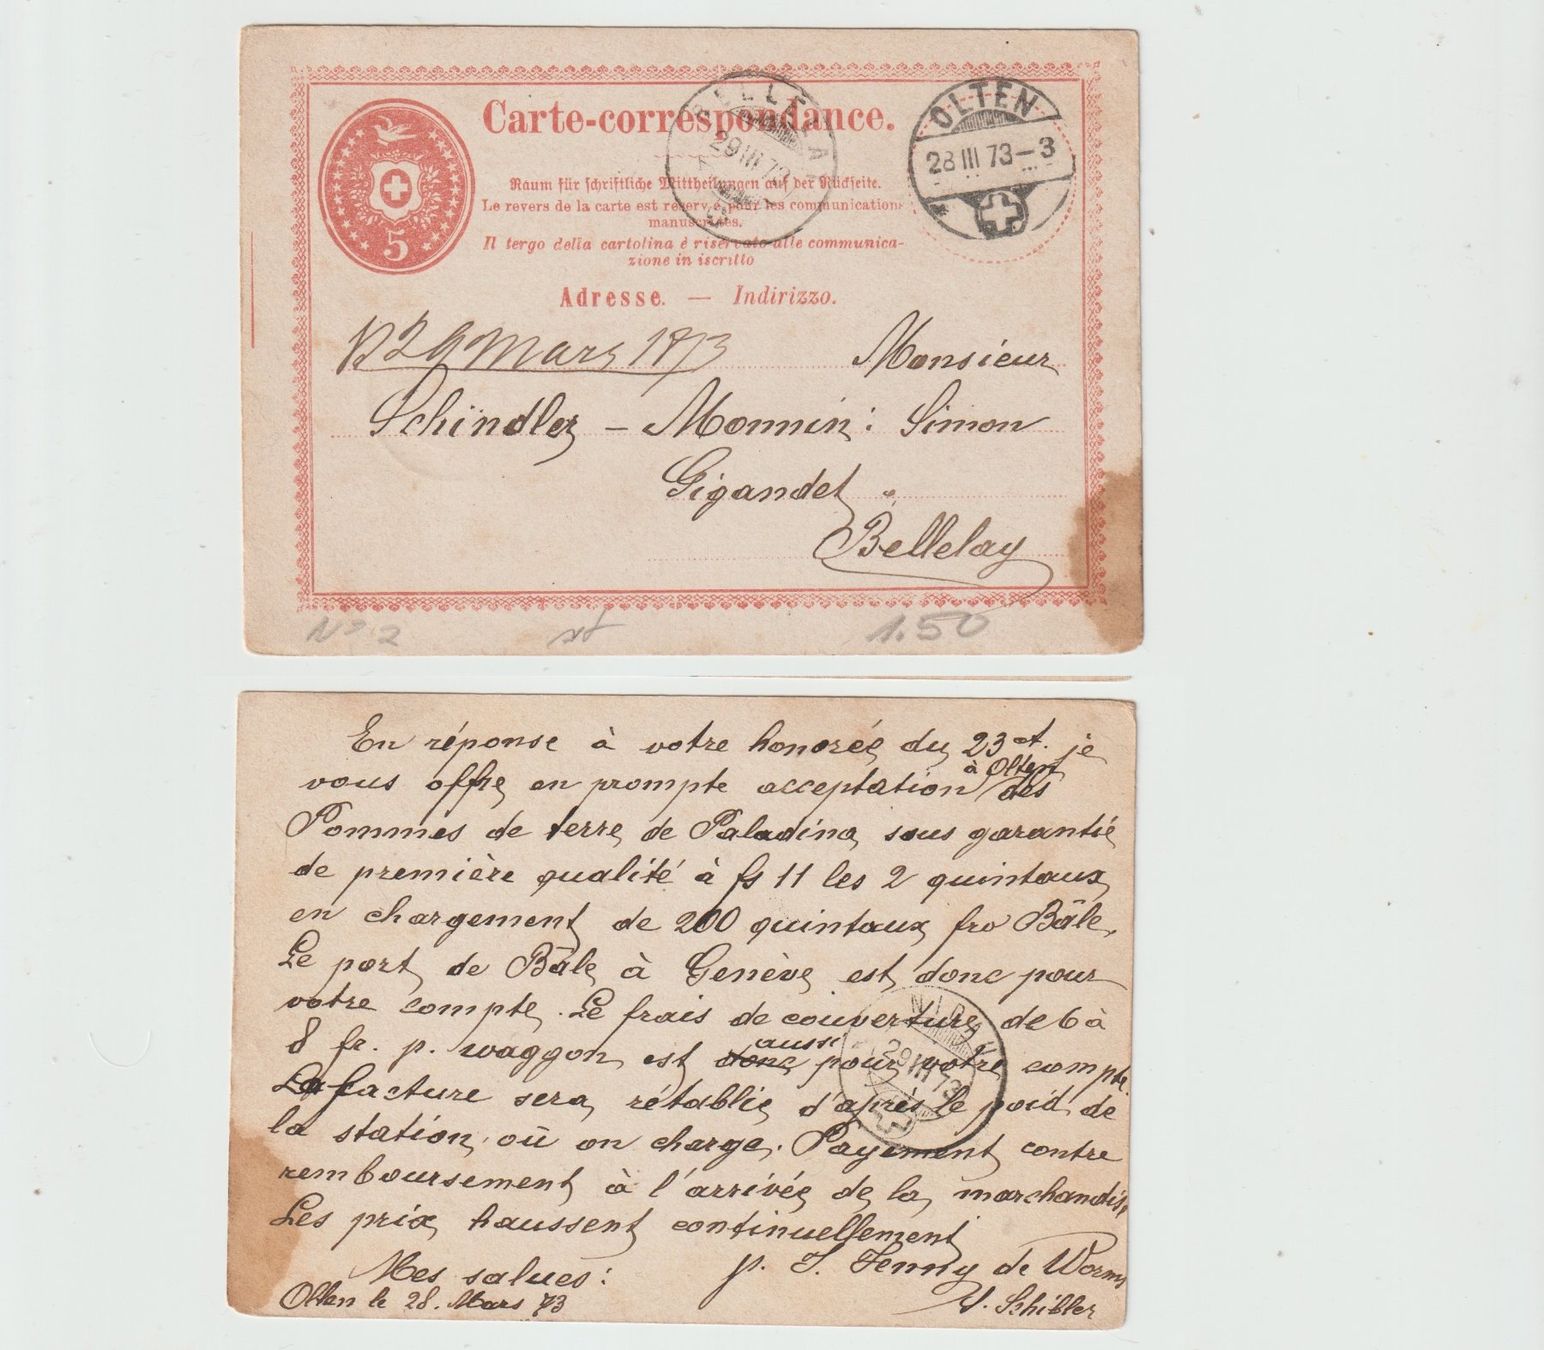 Carte-correspondance.
5
OLTEN
28 III 73 – 3
29 III 73
Raum für schriftliche Mittheilungen auf der Rückseite.
Le revers de la carte est réservé pour les communications
manuscrites.
Il tergo della cartolina è riservato alle communica-
zione in iscritto
Adresse. — Indirizzo.
29 Mars 1873
Monsieur
Schindler – Monnin : Simon
Gigandet
Bellelay
No 2
1.50
En réponse à votre honorée du 23 ct. je
vous offre en prompte acceptation à Olten des
Pommes de terre de Paladina sous garantie
de première qualité à fs 11 les 2 quintaux
en chargement de 200 quintaux fro Bâle.
Le port de Bâle à Genève est donc pour
votre compte. Le frais de couverture de 6 à
8 fr. p. waggon est donc aussi pour votre compte
La facture sera rétablie d'après le poid de
la station où on charge. Payement contre
remboursement à l'arrivée de la marchandise
Les prix haussent continuellement
Mes salues :
p. J. Jenny de Worms
Olten le 28. Mars 73
J. Schibler
NIDAU
29 III 73